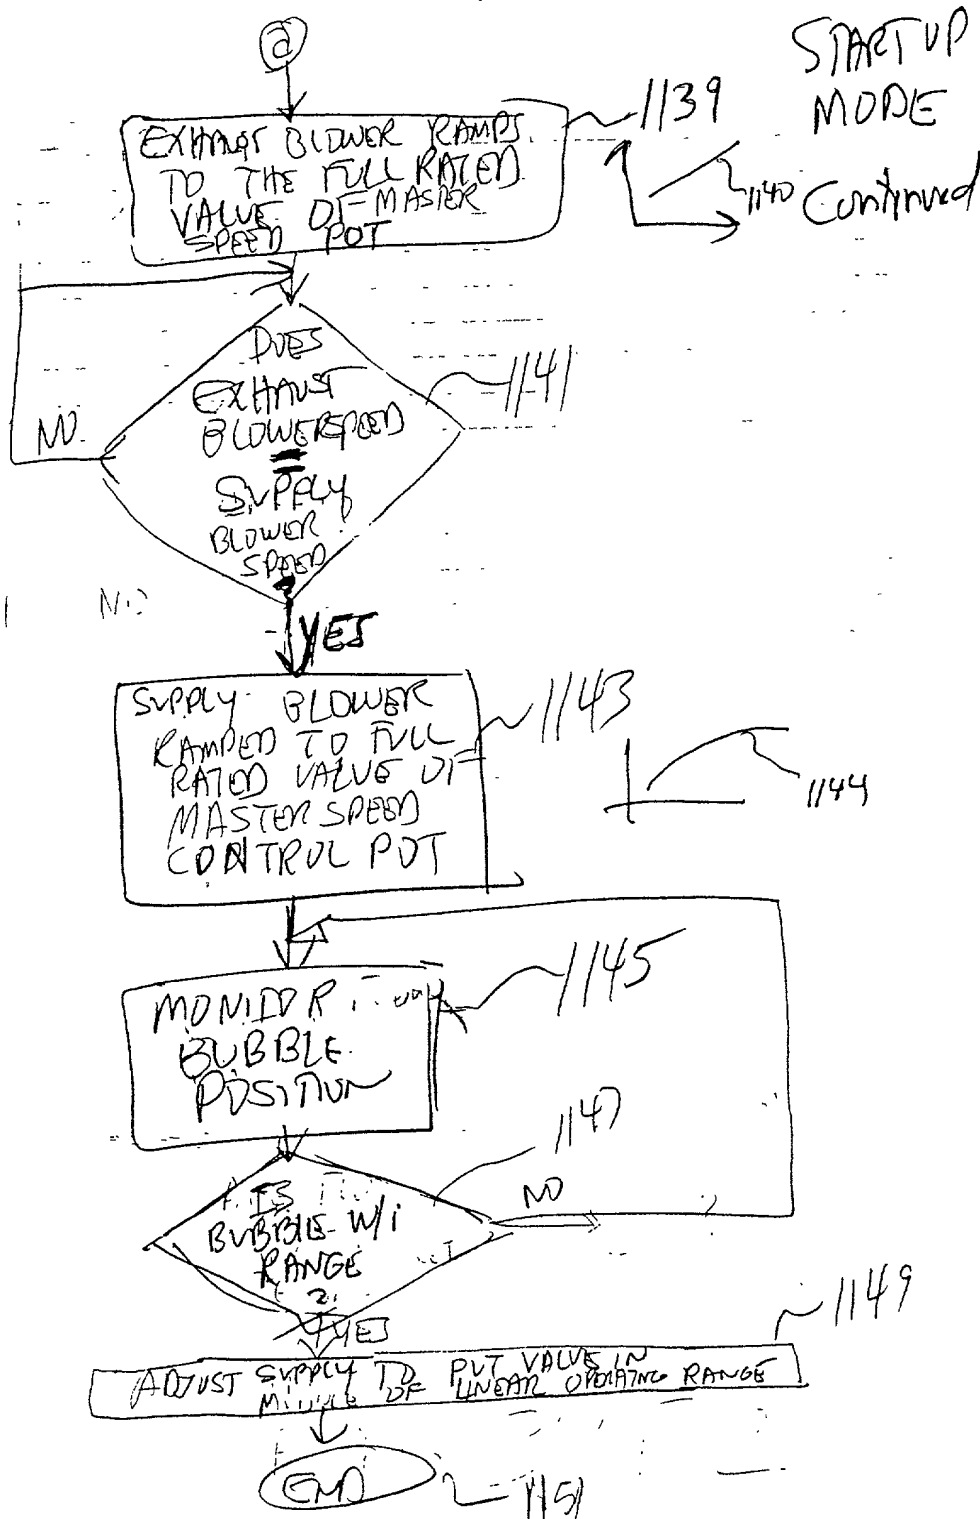 STARTUP
MODE
Continued
a
EXHAUST BLOWER RAMPS
TO THE FULL RATED
VALUE OF MASTER
SPEED POT
1139
1140
DOES
EXHAUST
BLOWER SPEED
=
SUPPLY
BLOWER
SPEED
1141
NO
YES
SUPPLY BLOWER
RAMPED TO FULL
RATED VALUE OF
MASTER SPEED
CONTROL POT
1143
1144
MONITOR
BUBBLE
POSITION
1145
IS
BUBBLE W/i
RANGE
?
1147
NO
YES
ADJUST SUPPLY TO PUT VALUE IN
MIDDLE OF LINEAR OPERATING RANGE
1149
END
1151